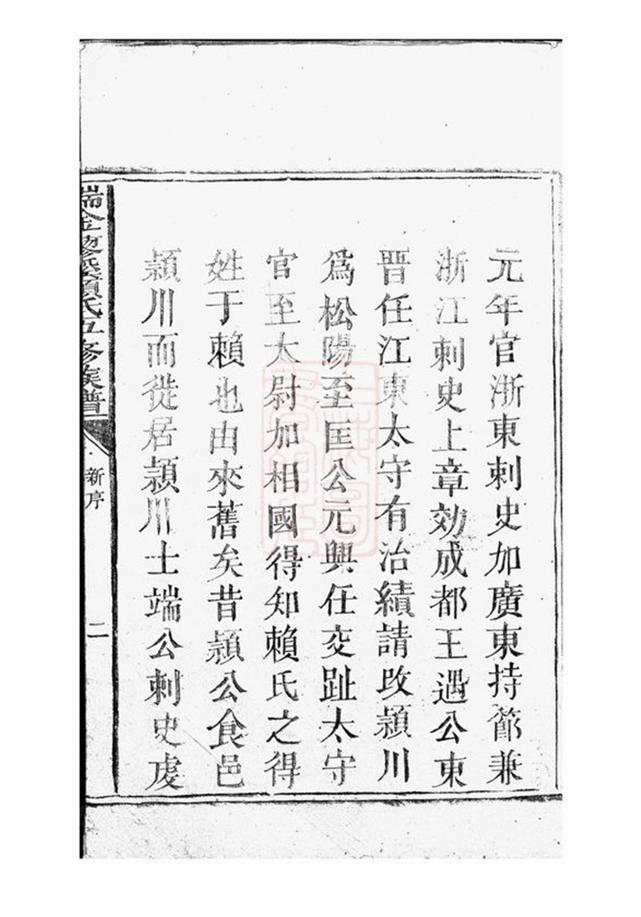 元年官浙東刺史加廣東持節兼
浙江刺史上章効成都王遇公東
晋任江東太守有治績請改頴川
爲松陽至匡公元興任交趾太守
官至太尉加相國得知賴氏之得
姓于賴也由來舊矣昔頴公食邑
頴川而徙居頴川士端公刺史虔
瑞金賴氏五修族譜
新序
二